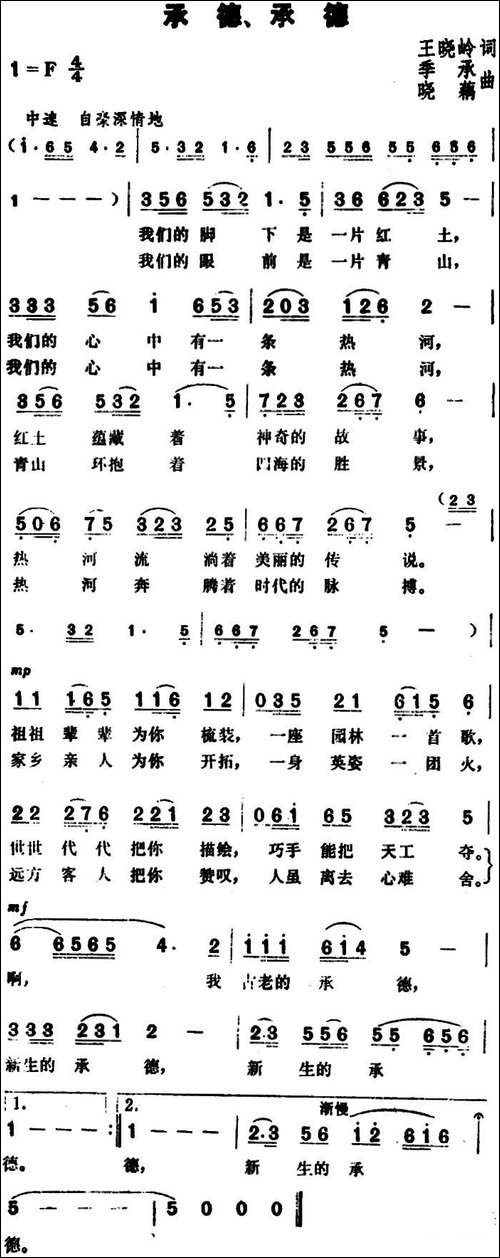 承德、承德
1=F 4/4
王晓岭 词
季承 晓藕 曲
中速 自豪深情地
(i·65 4·2 | 5·32 1·6 | 23 556 55 656 |
1 — — —) | 356 532 1·5 | 36 623 5 — |
我们的脚 下是一片红土,
我们的眼 前是一片青山,
333 56 i 653 | 203 126 2 — |
我们的心中有一条热河,
我们的心中有一条热河,
356 532 1·5 | 723 267 6 — |
红土蕴藏着 神奇的故事,
青山环抱着 四海的胜景,
506 75 323 25 | 667 267 5 — (23 |
热河流淌着美丽的传说。
热河奔腾着时代的脉搏。
5· 32 1· 5 | 667 267 5 — ) |
mp
11 165 116 12 | 035 21 615 6 |
祖祖辈辈为你梳装, 一座园林一首歌,
家乡亲人为你开拓, 一身英姿一团火,
22 276 221 23 | 061 65 323 5 |
世世代代把你描绘, 巧手能把天工夺。
远方客人把你赞叹, 人虽离去心难舍。
mf
6 6565 4· 2 | iii 6i4 5 — |
啊, 我古老的承德,
333 231 2 — | 2·3 556 55 656 |
新生的承德, 新生的承
1. 2. 渐慢
1 — — — :‖ 1 — — — | 2·3 56 i2 6i6 |
德。 德, 新生的承
5 — — — | 5 0 0 0 ‖
德。